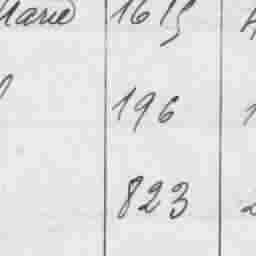 Marie 1615
196
823